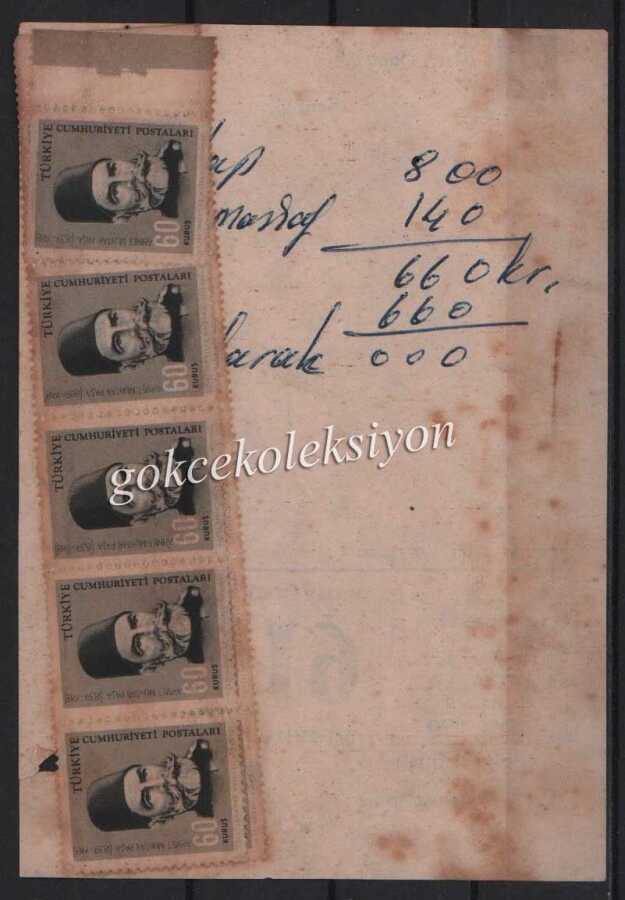 TÜRKİYE CUMHURİYETİ POSTALARI
60
KURUŞ
800
masraf 140
660 kr.
660
larak 000
TÜRKİYE CUMHURİYETİ POSTALARI
60
KURUŞ
gokcekoleksiyon
TÜRKİYE CUMHURİYETİ POSTALARI
60
KURUŞ
TÜRKİYE CUMHURİYETİ POSTALARI
60
KURUŞ
TÜRKİYE CUMHURİYETİ POSTALARI
60
KURUŞ